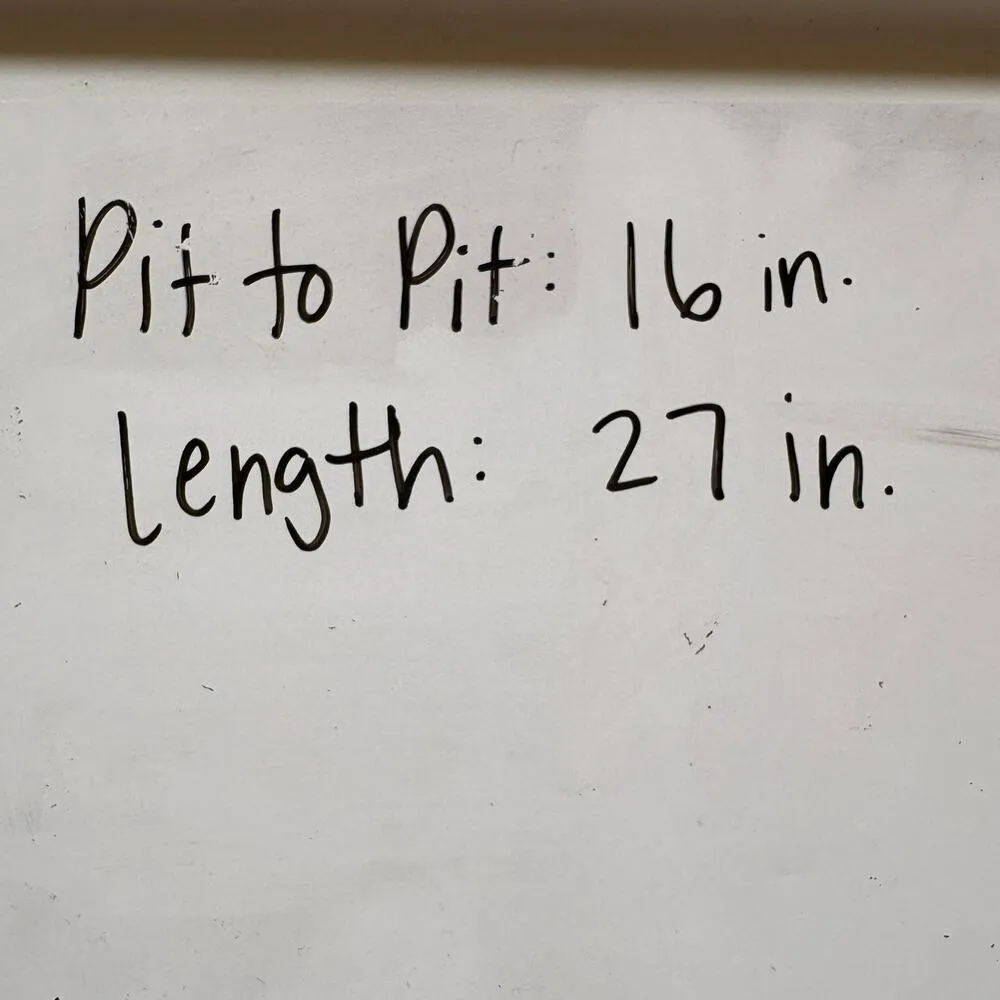 Pit to Pit: 16 in.
Length: 27 in.